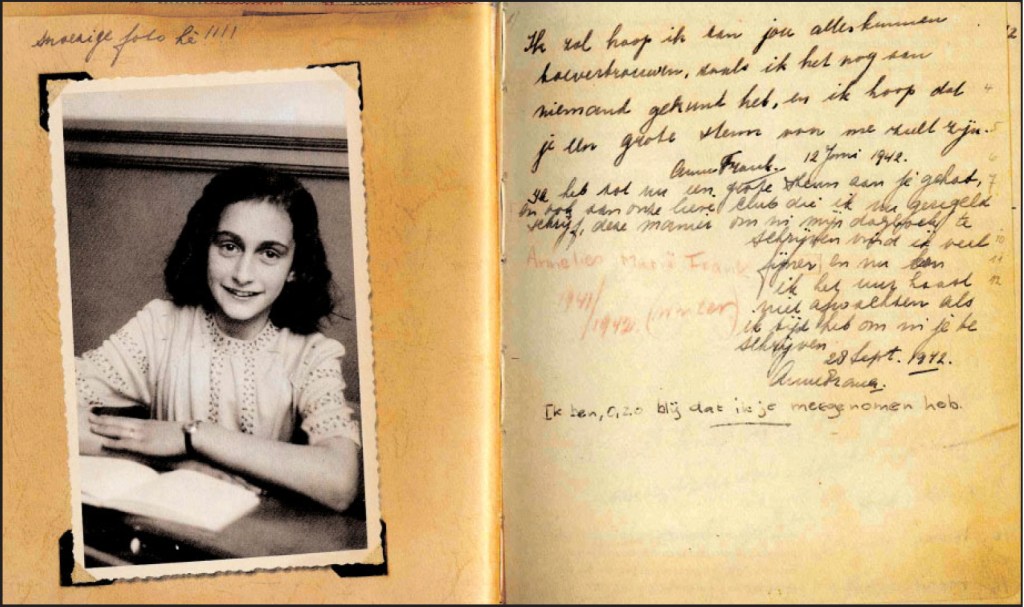 snoezige foto hè!!!!
Ik zal hoop ik aan jou alles kunnen
toevertrouwen, zoals ik het nog aan
niemand gekund heb, en ik hoop dat
je een grote steun van me zult zijn.
Anne Frank. 12 Juni 1942.
Ik heb tot nu een grote steun aan je gehad,
en ook aan onze lieve club die ik nu geregeld
schrijf, deze manier om in mijn dagboek te
schrijven vind ik veel
fijner en nu kan
ik het uur haast
niet afwachten als
ik tijd heb om in je te
schrijven.
28 Sept. 1942.
Anne Frank.
Annelies Marie Frank
1941/
1942. (winter)
Ik ben, o, zo blij dat ik je meegenomen heb.
4
5
7
10
11
12